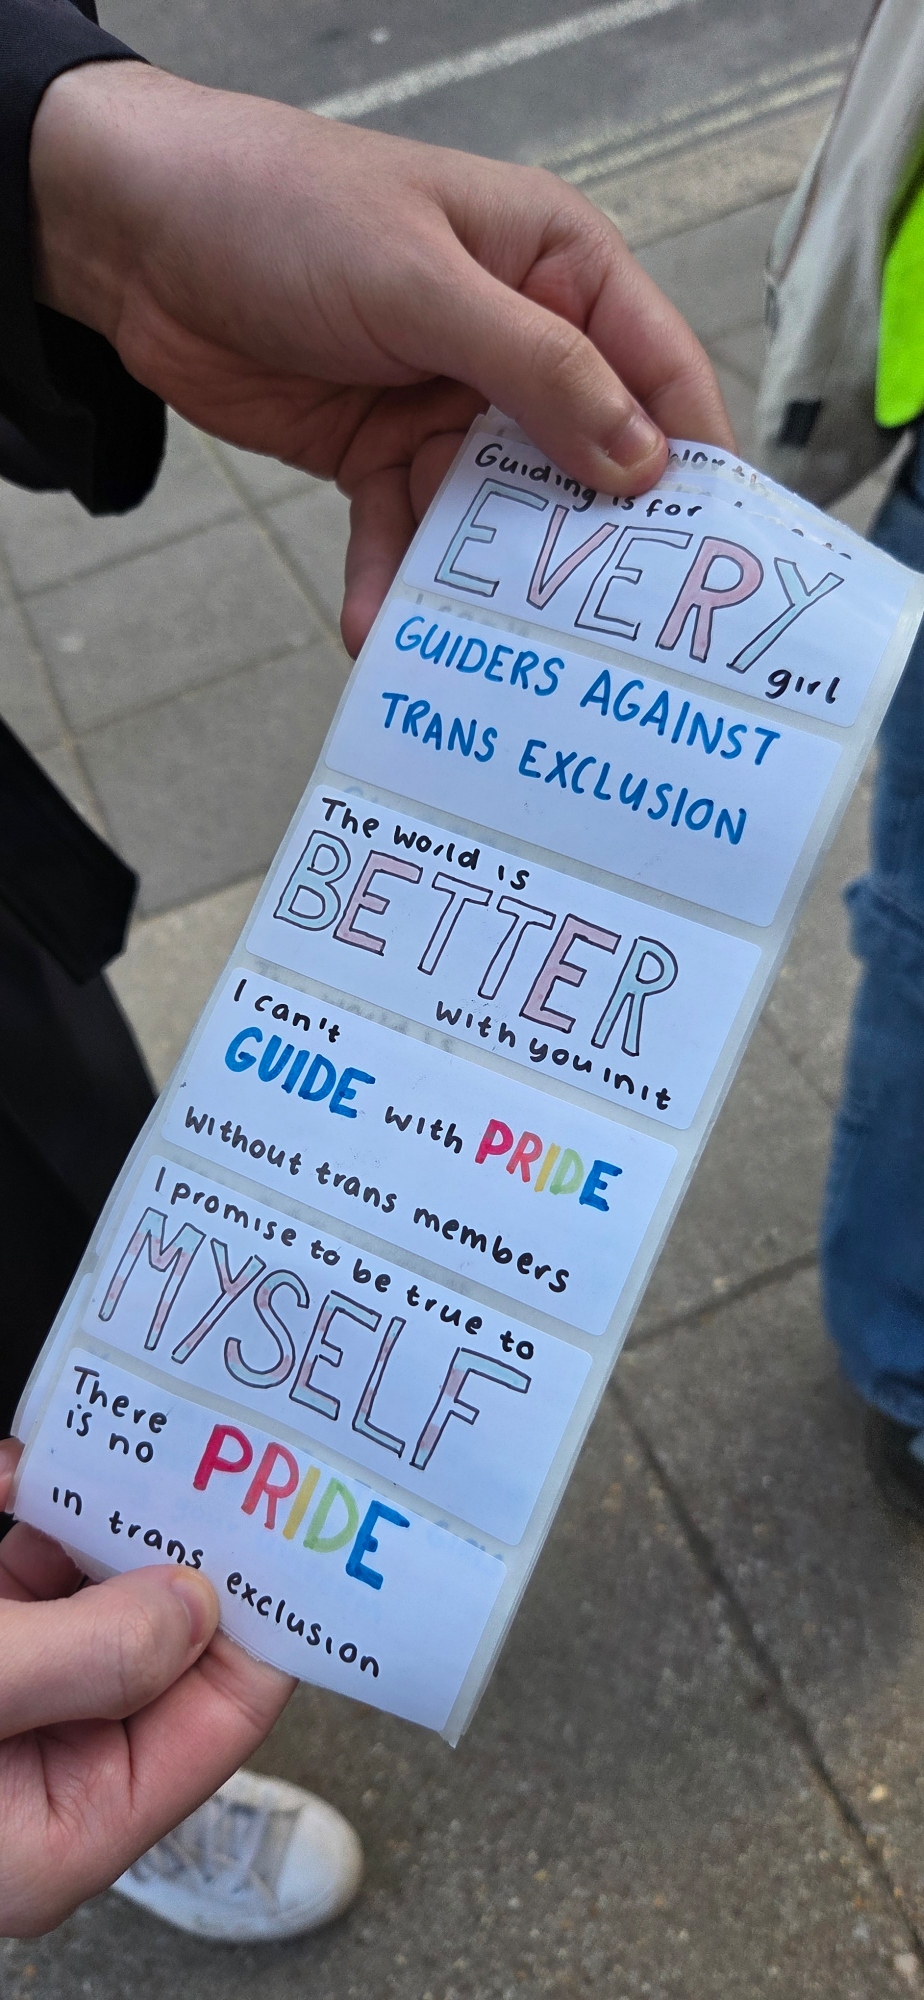 Guiding is for
EVERY
girl
GUIDERS AGAINST
TRANS EXCLUSION
The world is
BETTER
with you in it
I can't
GUIDE with PRIDE
without trans members
I promise to be true to
MYSELF
There
is no PRIDE
in trans exclusion